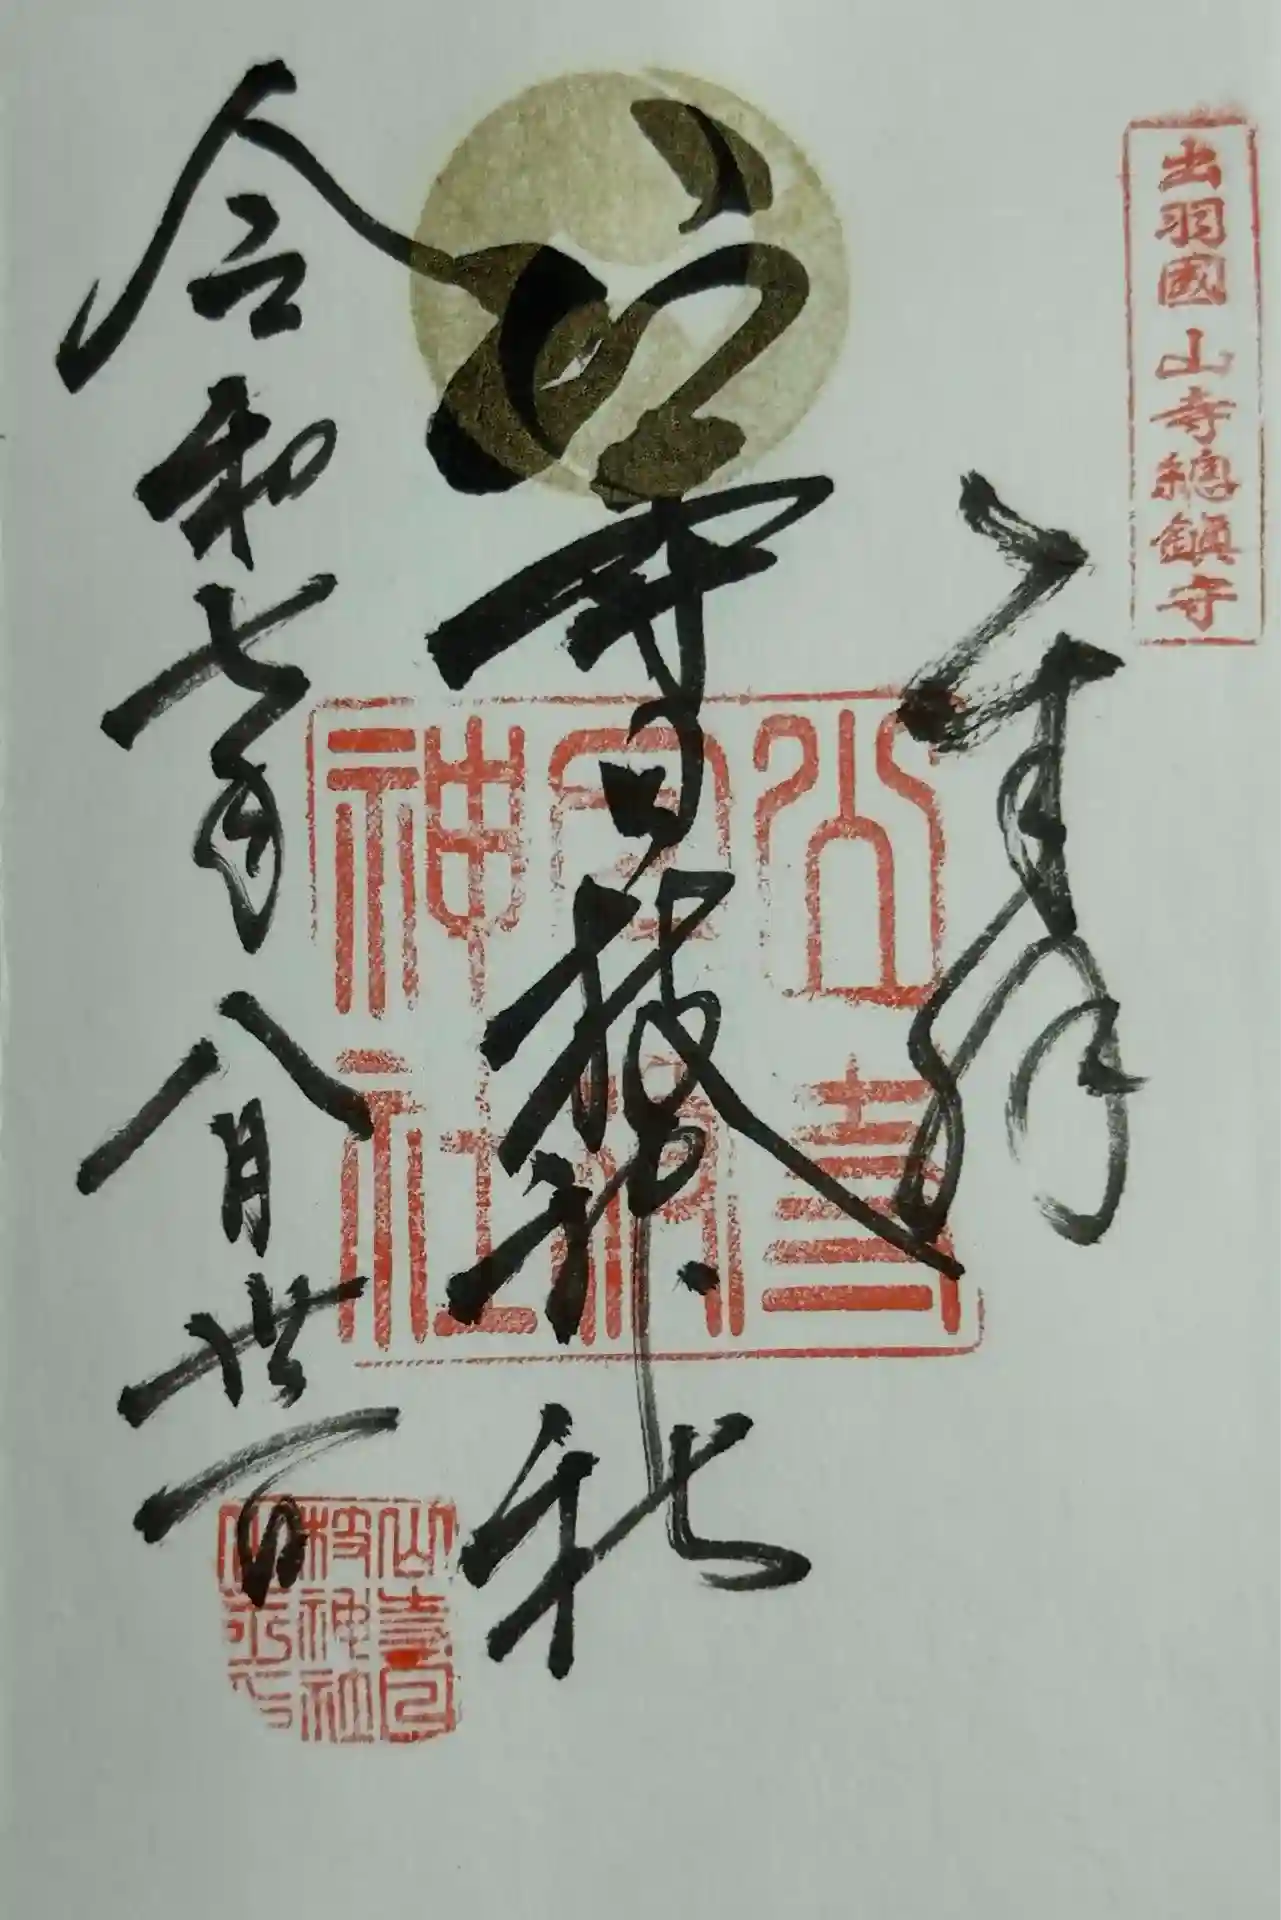 出羽國山寺總鎮守
奉拜
山寺日枝神社
令和七年八月廿一日
山寺日枝神社
山寺日枝神社